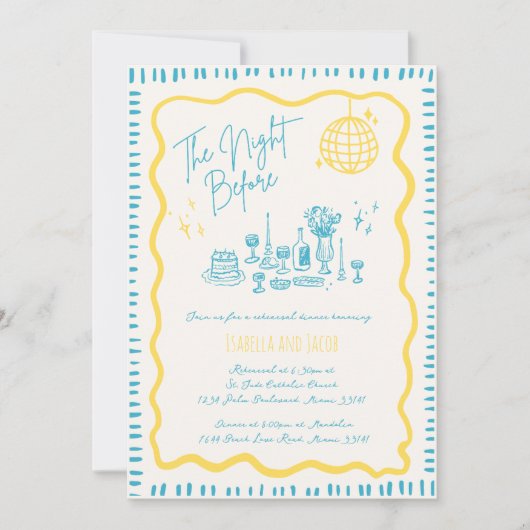 The Night
Before
Join us for a rehearsal dinner honoring
Isabella and Jacob
Rehearsal at 6:30pm at
St. Jude Catholic Church
1234 Palm Boulevard, Miami 33141
Dinner at 8:00pm at Mandolin
7644 Beach Lane Road, Miami 33141